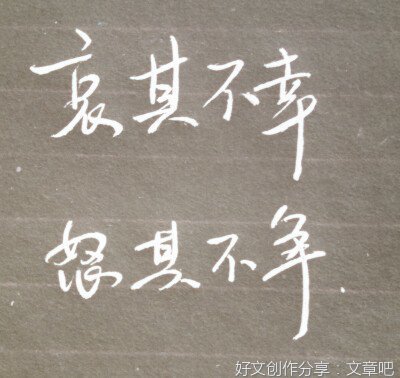 哀其不幸
怒其不争.
好文创作分享：文章吧